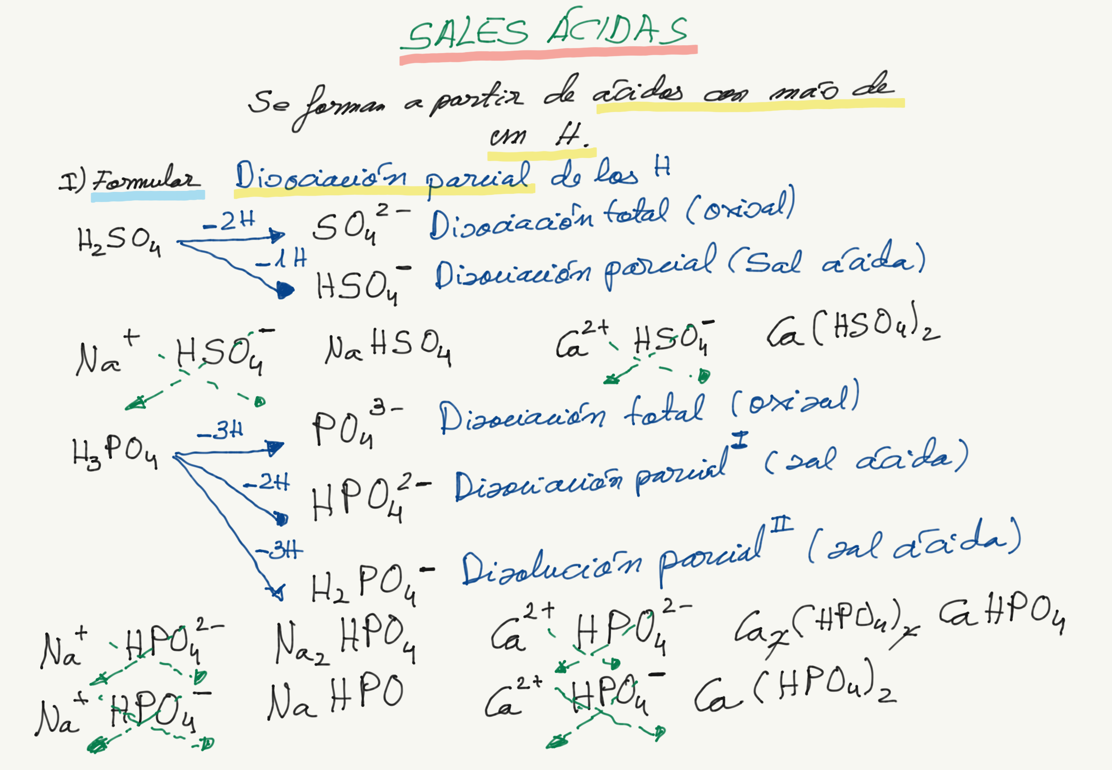 SALES ÁCIDAS
Se forman a partir de ácidos con mão de
um H.
I) Formular Disociación parcial de los H
H₂SO₄ -2H SO₄²⁻ Disociación total (oxisal)
-1H HSO₄⁻ Disociación parcial (Sal ácida)
Na⁺ HSO₄⁻ NaHSO₄ Ca²⁺ HSO₄⁻ Ca(HSO₄)₂
H₃PO₄ -3H PO₄³⁻ Disociación total (oxisal)
-2H HPO₄²⁻ Disociación parcial I (sal ácida)
-3H H₂PO₄⁻ Disolución parcial II (sal ácida)
Na⁺ HPO₄²⁻ Na₂HPO₄ Ca²⁺ HPO₄²⁻ Ca₂(HPO₄)₂ CaHPO₄
Na⁺ HPO₄⁻ NaHPO Ca²⁺ HPO₄⁻ Ca(HPO₄)₂